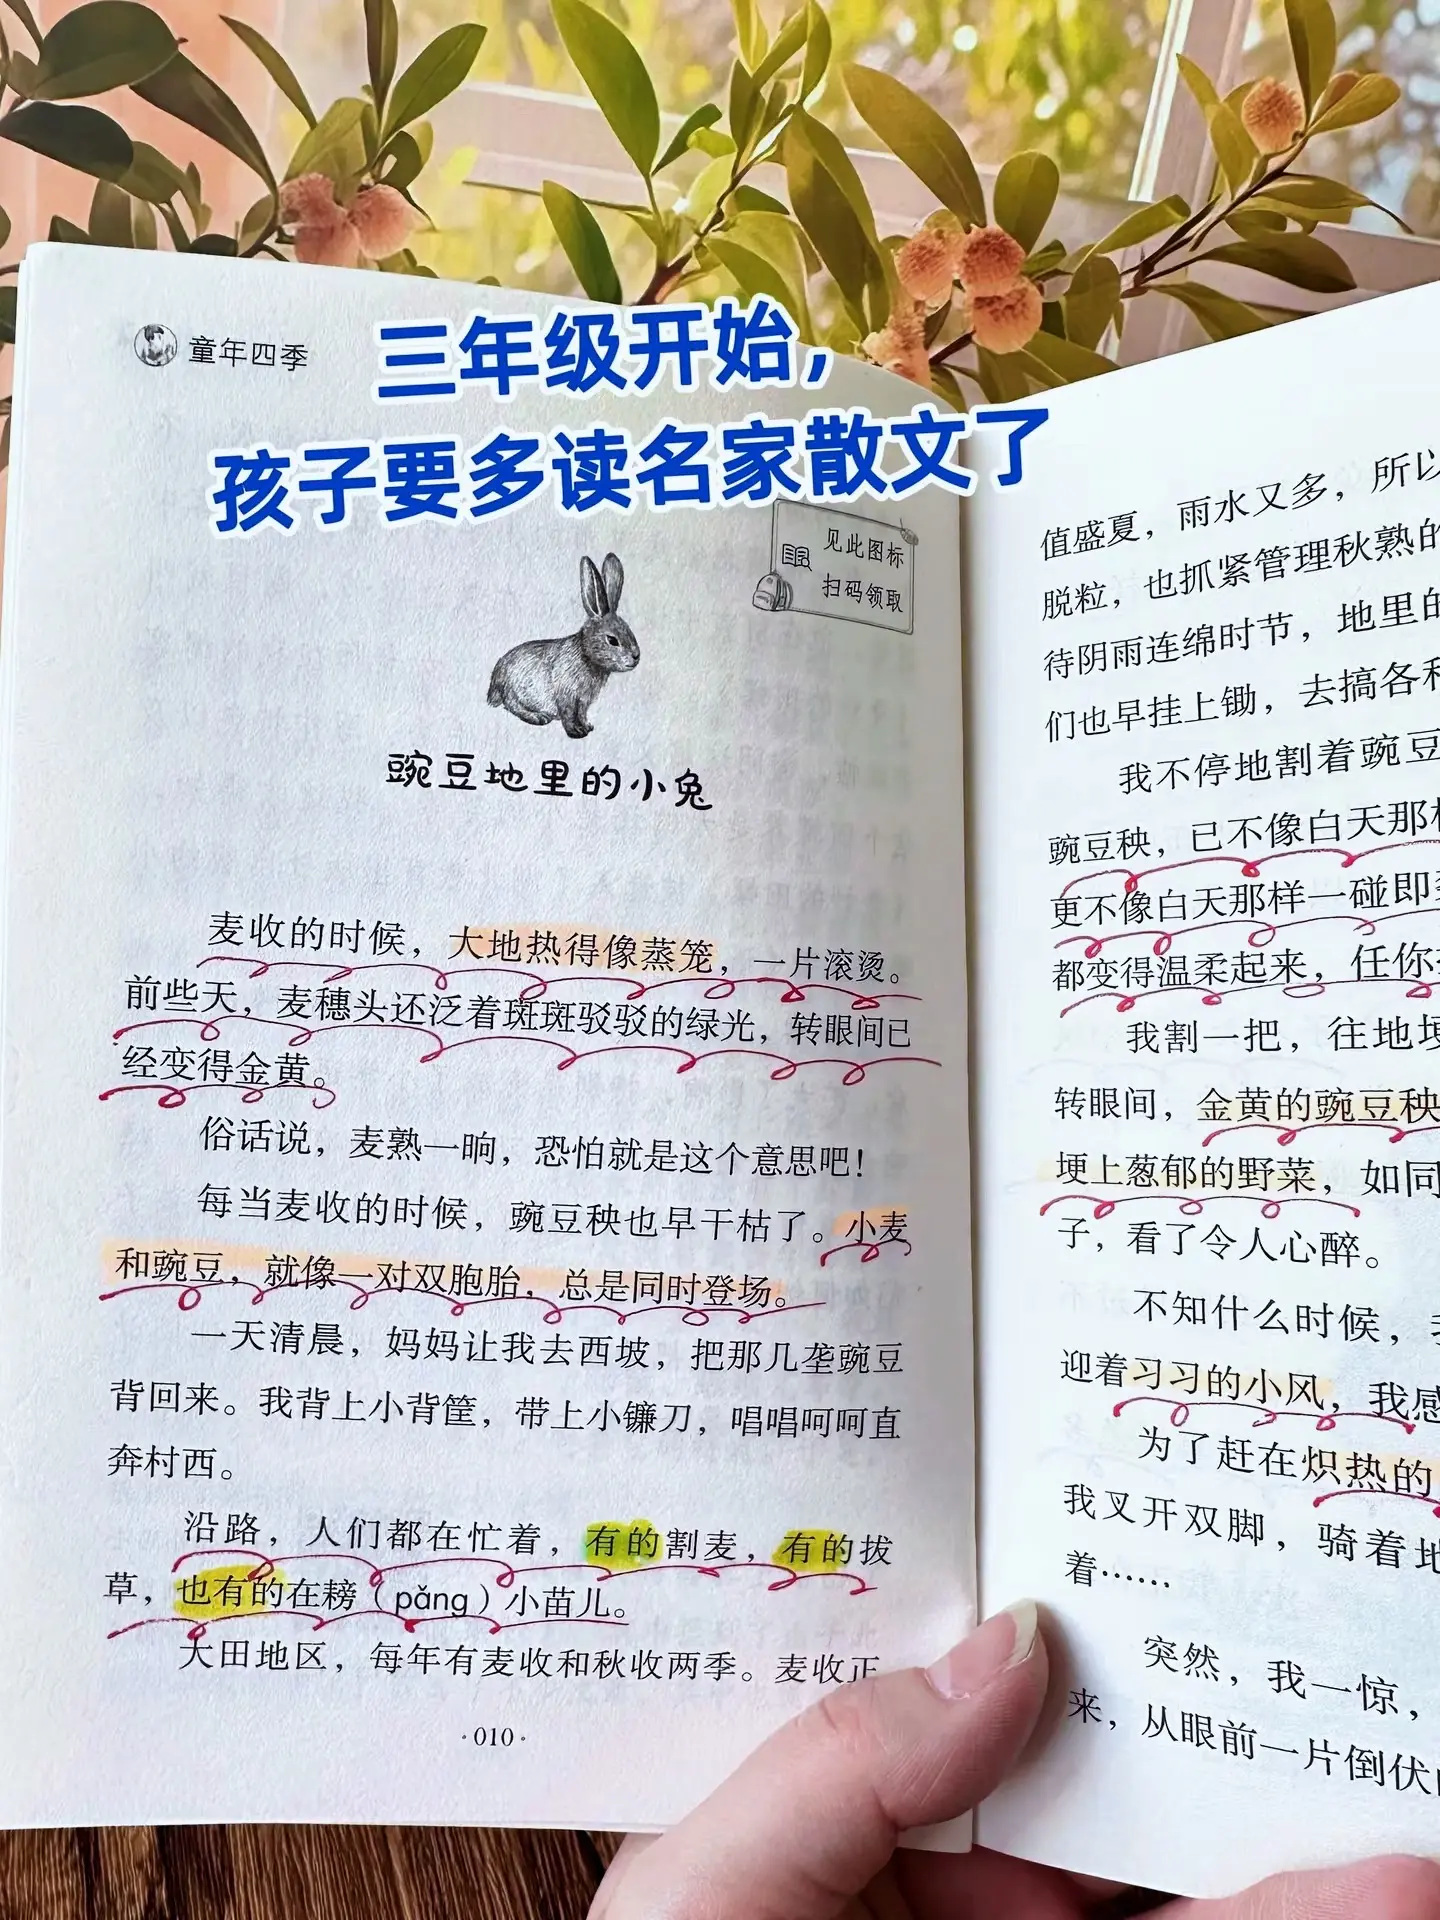 童年四季
三年级开始，
孩子要多读名家散文了
见此图标
扫码领取
豌豆地里的小兔
麦收的时候，大地热得像蒸笼，一片滚烫。
前些天，麦穗头还泛着斑斑驳驳的绿光，转眼间已
经变得金黄。
俗话说，麦熟一晌，恐怕就是这个意思吧！
每当麦收的时候，豌豆秧也早干枯了。小麦
和豌豆，就像一对双胞胎，总是同时登场。
一天清晨，妈妈让我去西坡，把那几垄豌豆
背回来。我背上小背筐，带上小镰刀，唱唱呵呵直
奔村西。
沿路，人们都在忙着，有的割麦，有的拔
草，也有的在耪（pǎng）小苗儿。
大田地区，每年有麦收和秋收两季。麦收正
·010·
值盛夏，雨水又多，所以
脱粒，也抓紧管理秋熟的
待阴雨连绵时节，地里的
们也早挂上锄，去搞各种
我不停地割着豌豆
豌豆秧，已不像白天那样
更不像白天那样一碰即
都变得温柔起来，任你
我割一把，往地埂
转眼间，金黄的豌豆秧
埂上葱郁的野菜，如同
子，看了令人心醉。
不知什么时候，
迎着习习的小风，我感
为了赶在炽热的
我叉开双脚，骑着地
着……
突然，我一惊，
来，从眼前一片倒伏